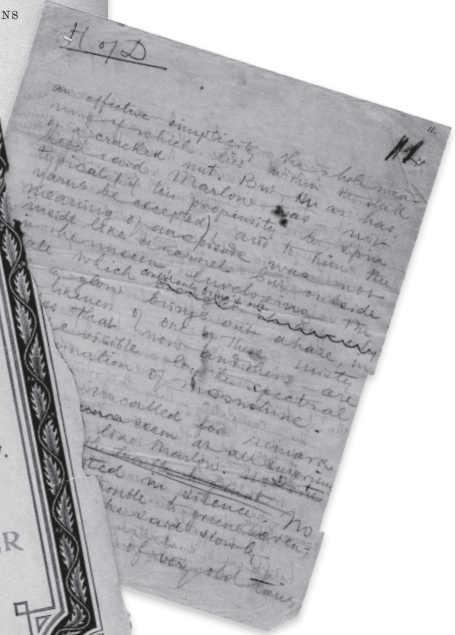 NS
H of D
11.
an effective simplicity, the whole mea-
ning of which lies within the shell
of a cracked nut. But as has
been said Marlow was not
typical (if his propensity to spin
yarns be excepted) and to him the
meaning of an episode was not
inside like a kernel but outside
in the unseen, enveloping the
tale which
a glow brings out a haze in
likeness of one of these misty
s that now and then are
e visible by the spectral
mination of moonshine.
uncalled for remark
seem at all surprising
like Marlow.
ted in silence. No
mble to grunt even;
he said slowly
of very old times
ER